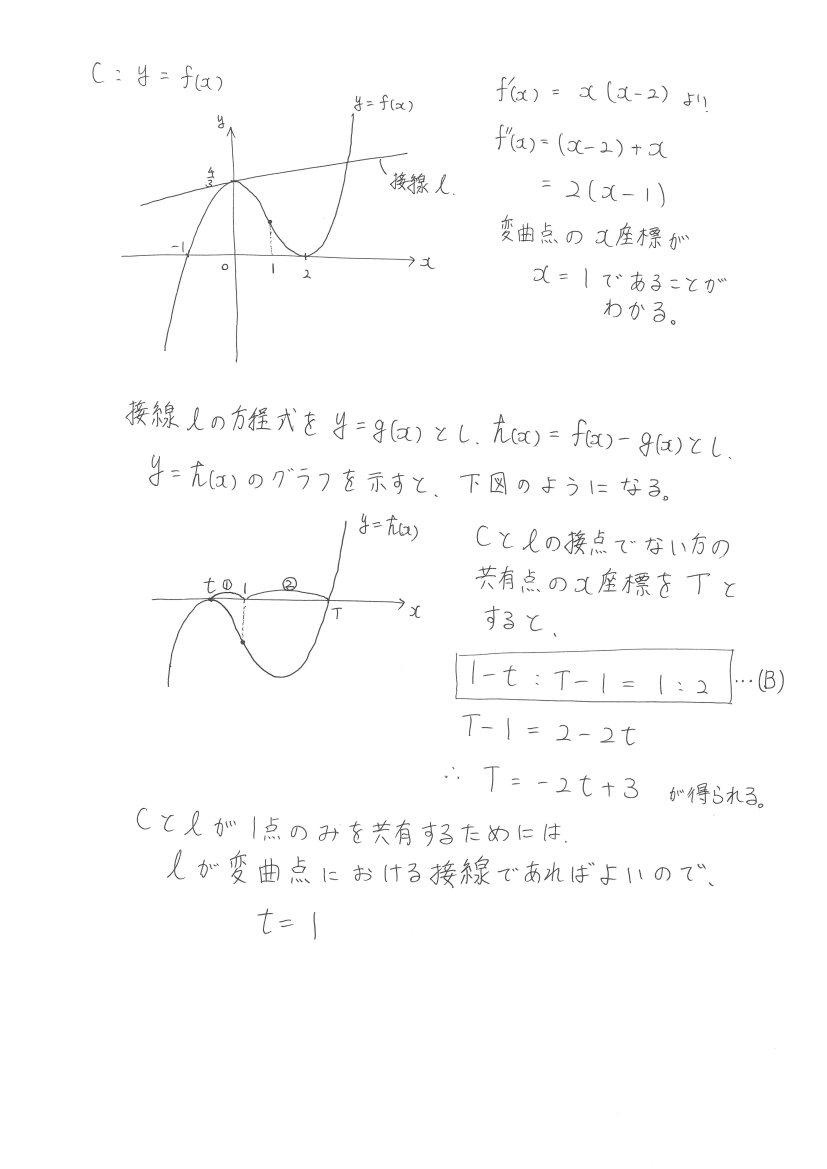 C : y = f(x)
y = f(x)
y
4/3
接線 l.
-1
0
1
2
x
f'(x) = x(x-2) より
f''(x) = (x-2)+x
= 2(x-1)
変曲点の x座標が
x = 1 であることが
わかる。
接線 l の方程式を y = g(x) とし、h(x) = f(x) - g(x) とし、
y = h(x) のグラフを示すと、下図のようになる。
y = h(x)
t ① 1 ②
T
x
Cと l の接点でない方の
共有点の x座標を T と
すると、
1-t : T-1 = 1 : 2 …(B)
T-1 = 2-2t
∴ T = -2t+3 が得られる。
Cと l が 1点のみを共有するためには、
l が変曲点における接線であればよいので、
t = 1